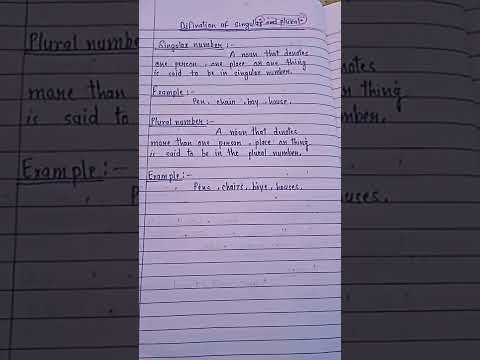 Difination of singular and plural:-
Singular number:-
A noun that denotes
one person, one place or one thing
is said to be in singular number.
Example:-
Pen, chair, boy, house.
Plural number:-
A noun that denotes
more than one person, place or thing
is said to be in the plural number.
Example:-
Pens, chairs, boys, houses.